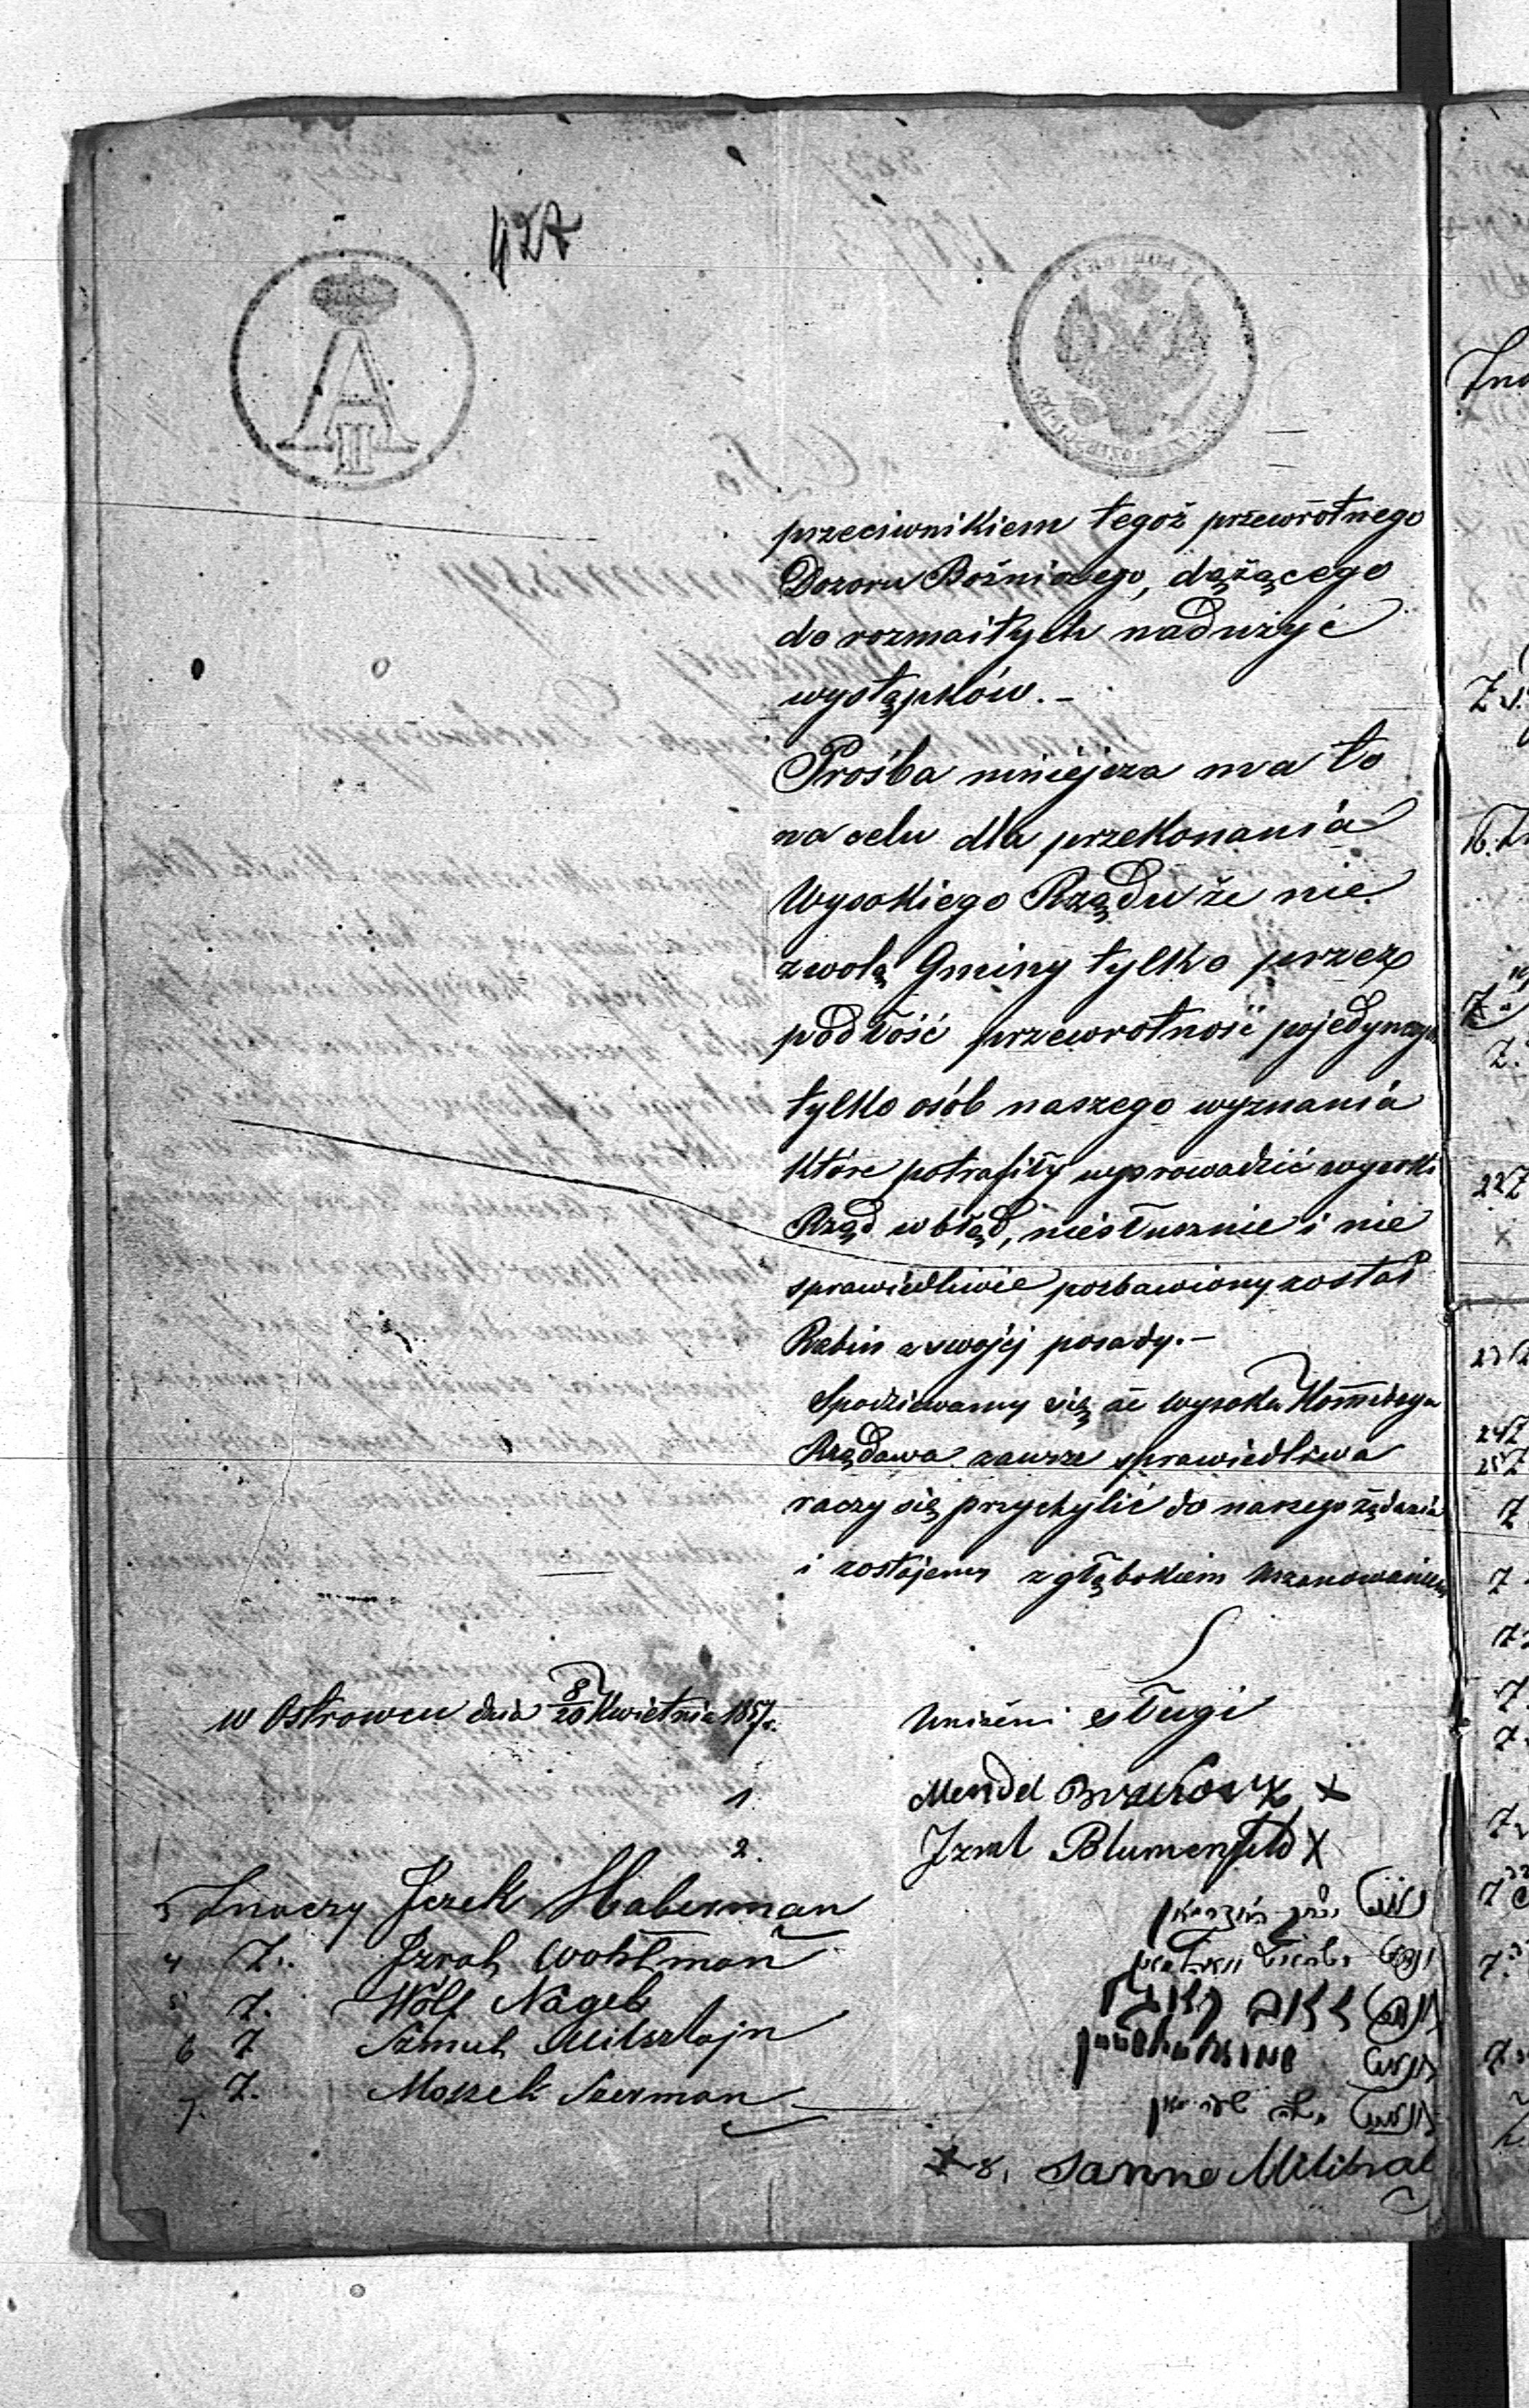 427
A II
przeciwnikiem tegoż przewrotnego
Dozoru Bożniczego, dążącego
do rozmaitych nadużyć
wystąpków. -
Prośba niniejsza ma to
na celu dla przekonania
Wysokiego Rządu że nie
z wolą Gminy tylko przez
podłość przewrotność pojedynczych
tylko osób naszego wyznania
które potrafiły wprowadzić wysoki
Rząd w błąd, niesłusznie i nie
sprawiedliwie pozbawiony został
Rabin z swojej posady. -
Spodziewamy się że wysoka Kommissya
Rządowa zawsze sprawiedliwa
raczy się przychylić do naszego żądania
i zostajemy z głębokiem uszanowaniem
w Ostrowcu dnia 8/20 Kwietnia 1857r.
Uniżeni sługi
1 Mendel X
2. Izrael Blumenfeld X
3 Znaczy Icek Haberman
4 Z. Izrael Wohlman
5 Z. Wolf Nagel
6 Z Szmul Milsztajn
7. Z. Moszek Szerman
8.